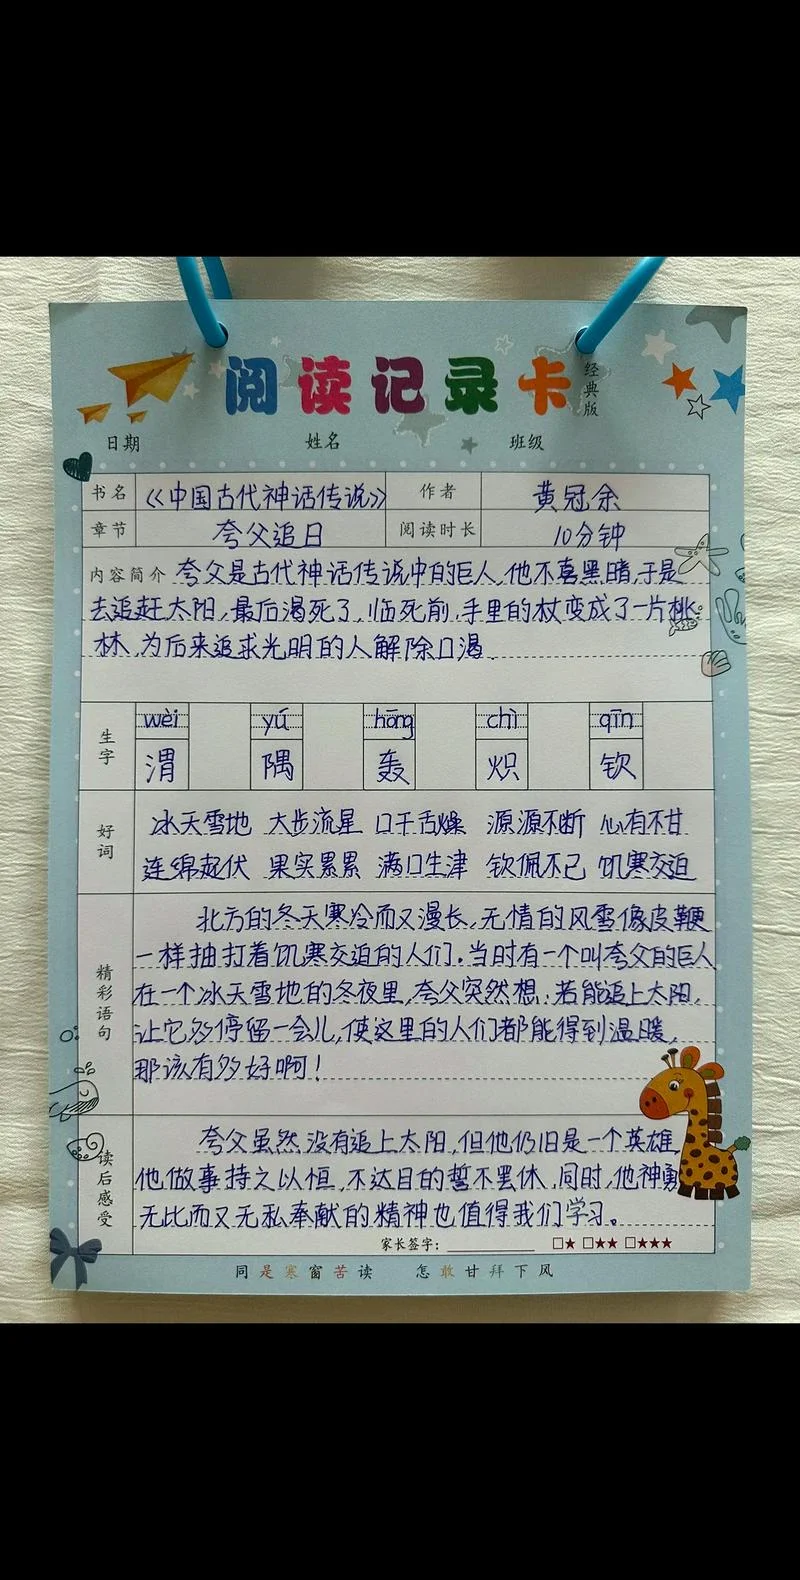 阅读记录卡 经典版
日期 姓名 班级
书名 《中国古代神话传说》 作者 黄冠余
章节 夸父追日 阅读时长 10分钟
内容简介 夸父是古代神话传说中的巨人,他不喜黑暗,于是
去追赶太阳,最后渴死了,临死前,手里的杖变成了一片桃
林,为后来追求光明的人解除口渴.
生字
wèi yú hōng chì qīn
渭 隅 轰 炽 钦
好词
冰天雪地 大步流星 口干舌燥 源源不断 心有不甘
连绵起伏 果实累累 满口生津 钦佩不已 饥寒交迫
精彩语句
北方的冬天寒冷而又漫长,无情的风雪像皮鞭
一样抽打着饥寒交迫的人们.当时有一个叫夸父的巨人
在一个冰天雪地的冬夜里,夸父突然想:若能追上太阳,
让它多停留一会儿,使这里的人们都能得到温暖,
那该有多好啊!
读后感受
夸父虽然没有追上太阳,但他仍旧是一个英雄,
他做事持之以恒,不达目的誓不罢休,同时,他神勇
无比而又无私奉献的精神也值得我们学习。
家长签字: □★ □★★ □★★★
同是寒窗苦读 怎敢甘拜下风